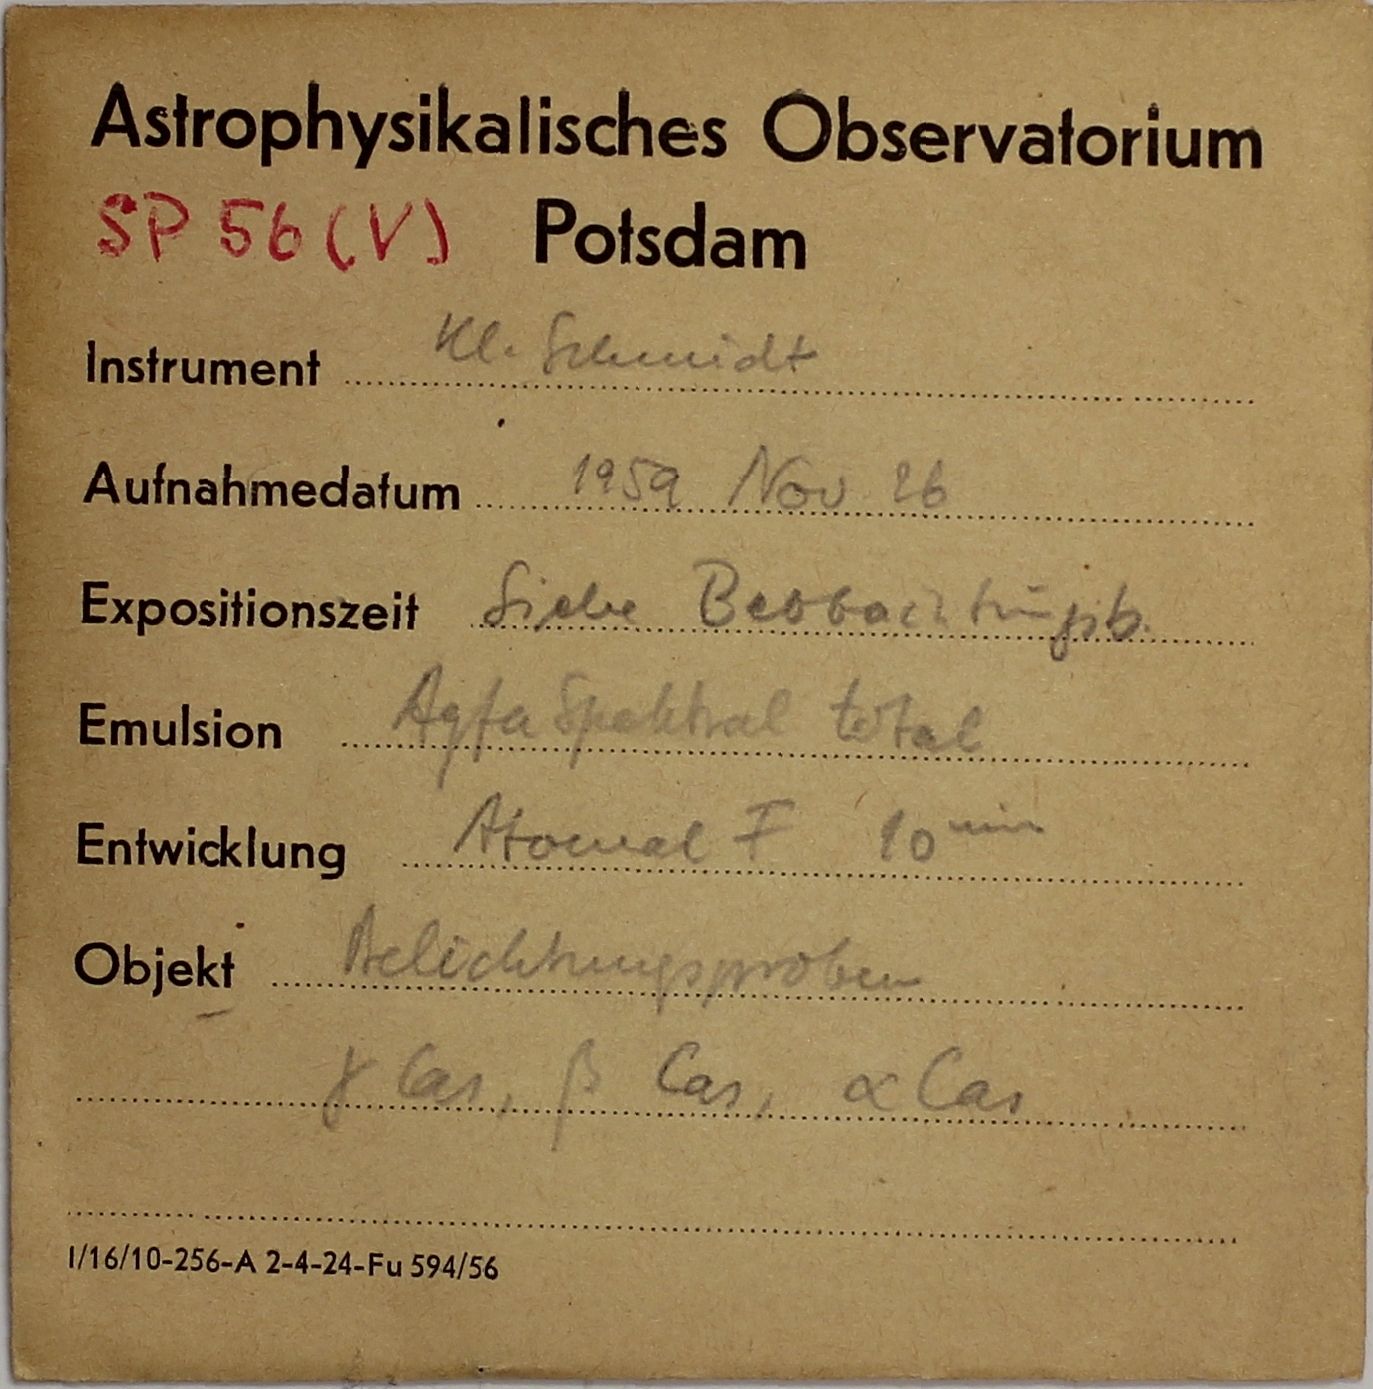 Astrophysikalisches Observatorium
SP 56 (V) Potsdam
Instrument Kl. Schmidt
Aufnahmedatum 1959 Nov 26
Expositionszeit Siehe Beobachtungsb.
Emulsion Agfa Spektral total
Entwicklung Atomal F 10 min
Objekt Belichtungsproben
γ Cas, β Cas, α Cas
I/16/10-256-A 2-4-24-Fu 594/56